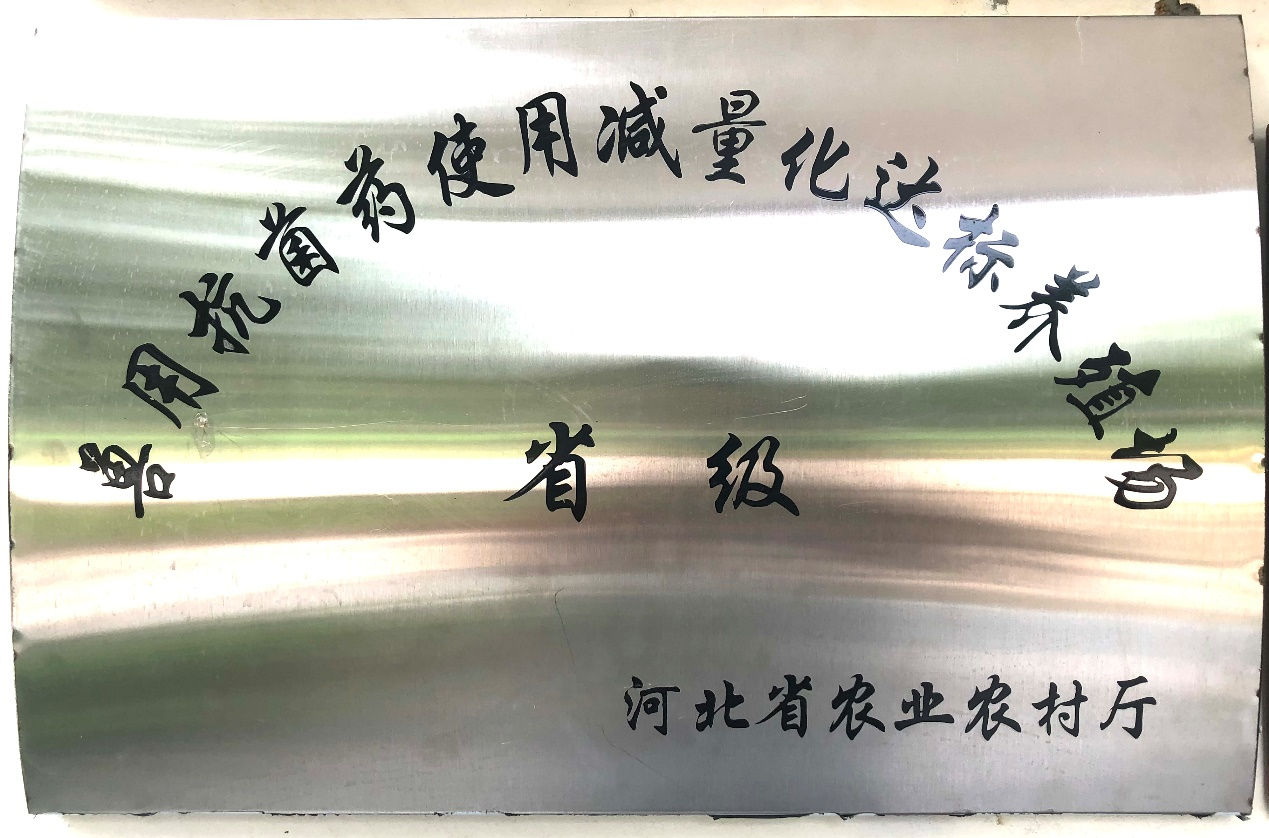 兽用抗菌药使用减量化达标养殖场
省级
河北省农业农村厅